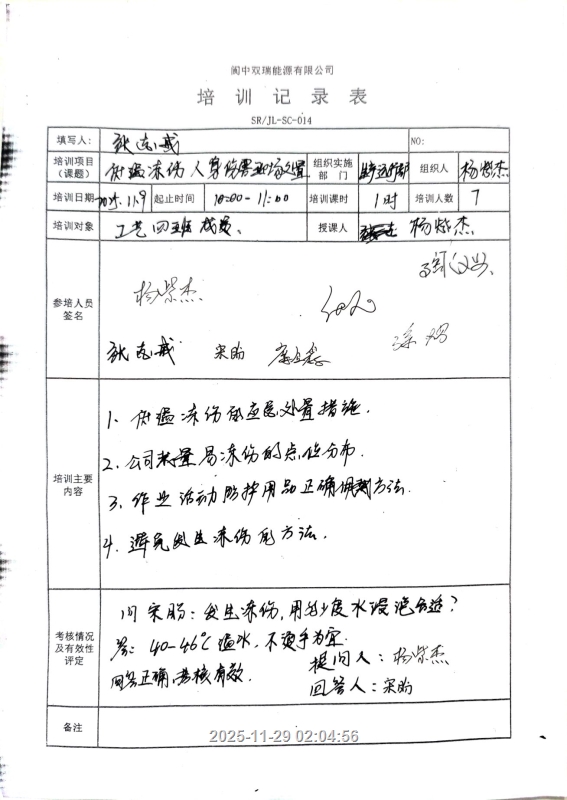 阆中双瑞能源有限公司
培训记录表
SR/JL-SC-014
填写人： 张志成 NO:
培训项目（课题） 低温冻伤人身伤害现场处置 组织实施部门 生产运行部 组织人 杨紫杰
培训日期 2025.11.9 起止时间 10:00-11:00 培训课时 1时 培训人数 7
培训对象 工艺四班成员、 授课人 杨紫杰
参培人员签名
杨紫杰
张志成 宋盼
培训主要内容
1、低温冻伤的应急处置措施.
2、公司易冻伤的点位分布.
3、作业活动防护用品正确佩戴方法.
4、避免发生冻伤的方法.
考核情况及有效性评定
问宋盼：发生冻伤，用多少度水浸泡合适？
答：40-46℃温水，不烫手为宜.
提问人：杨紫杰
回答正确，考核有效.
回答人：宋盼
备注
2025-11-29 02:04:56